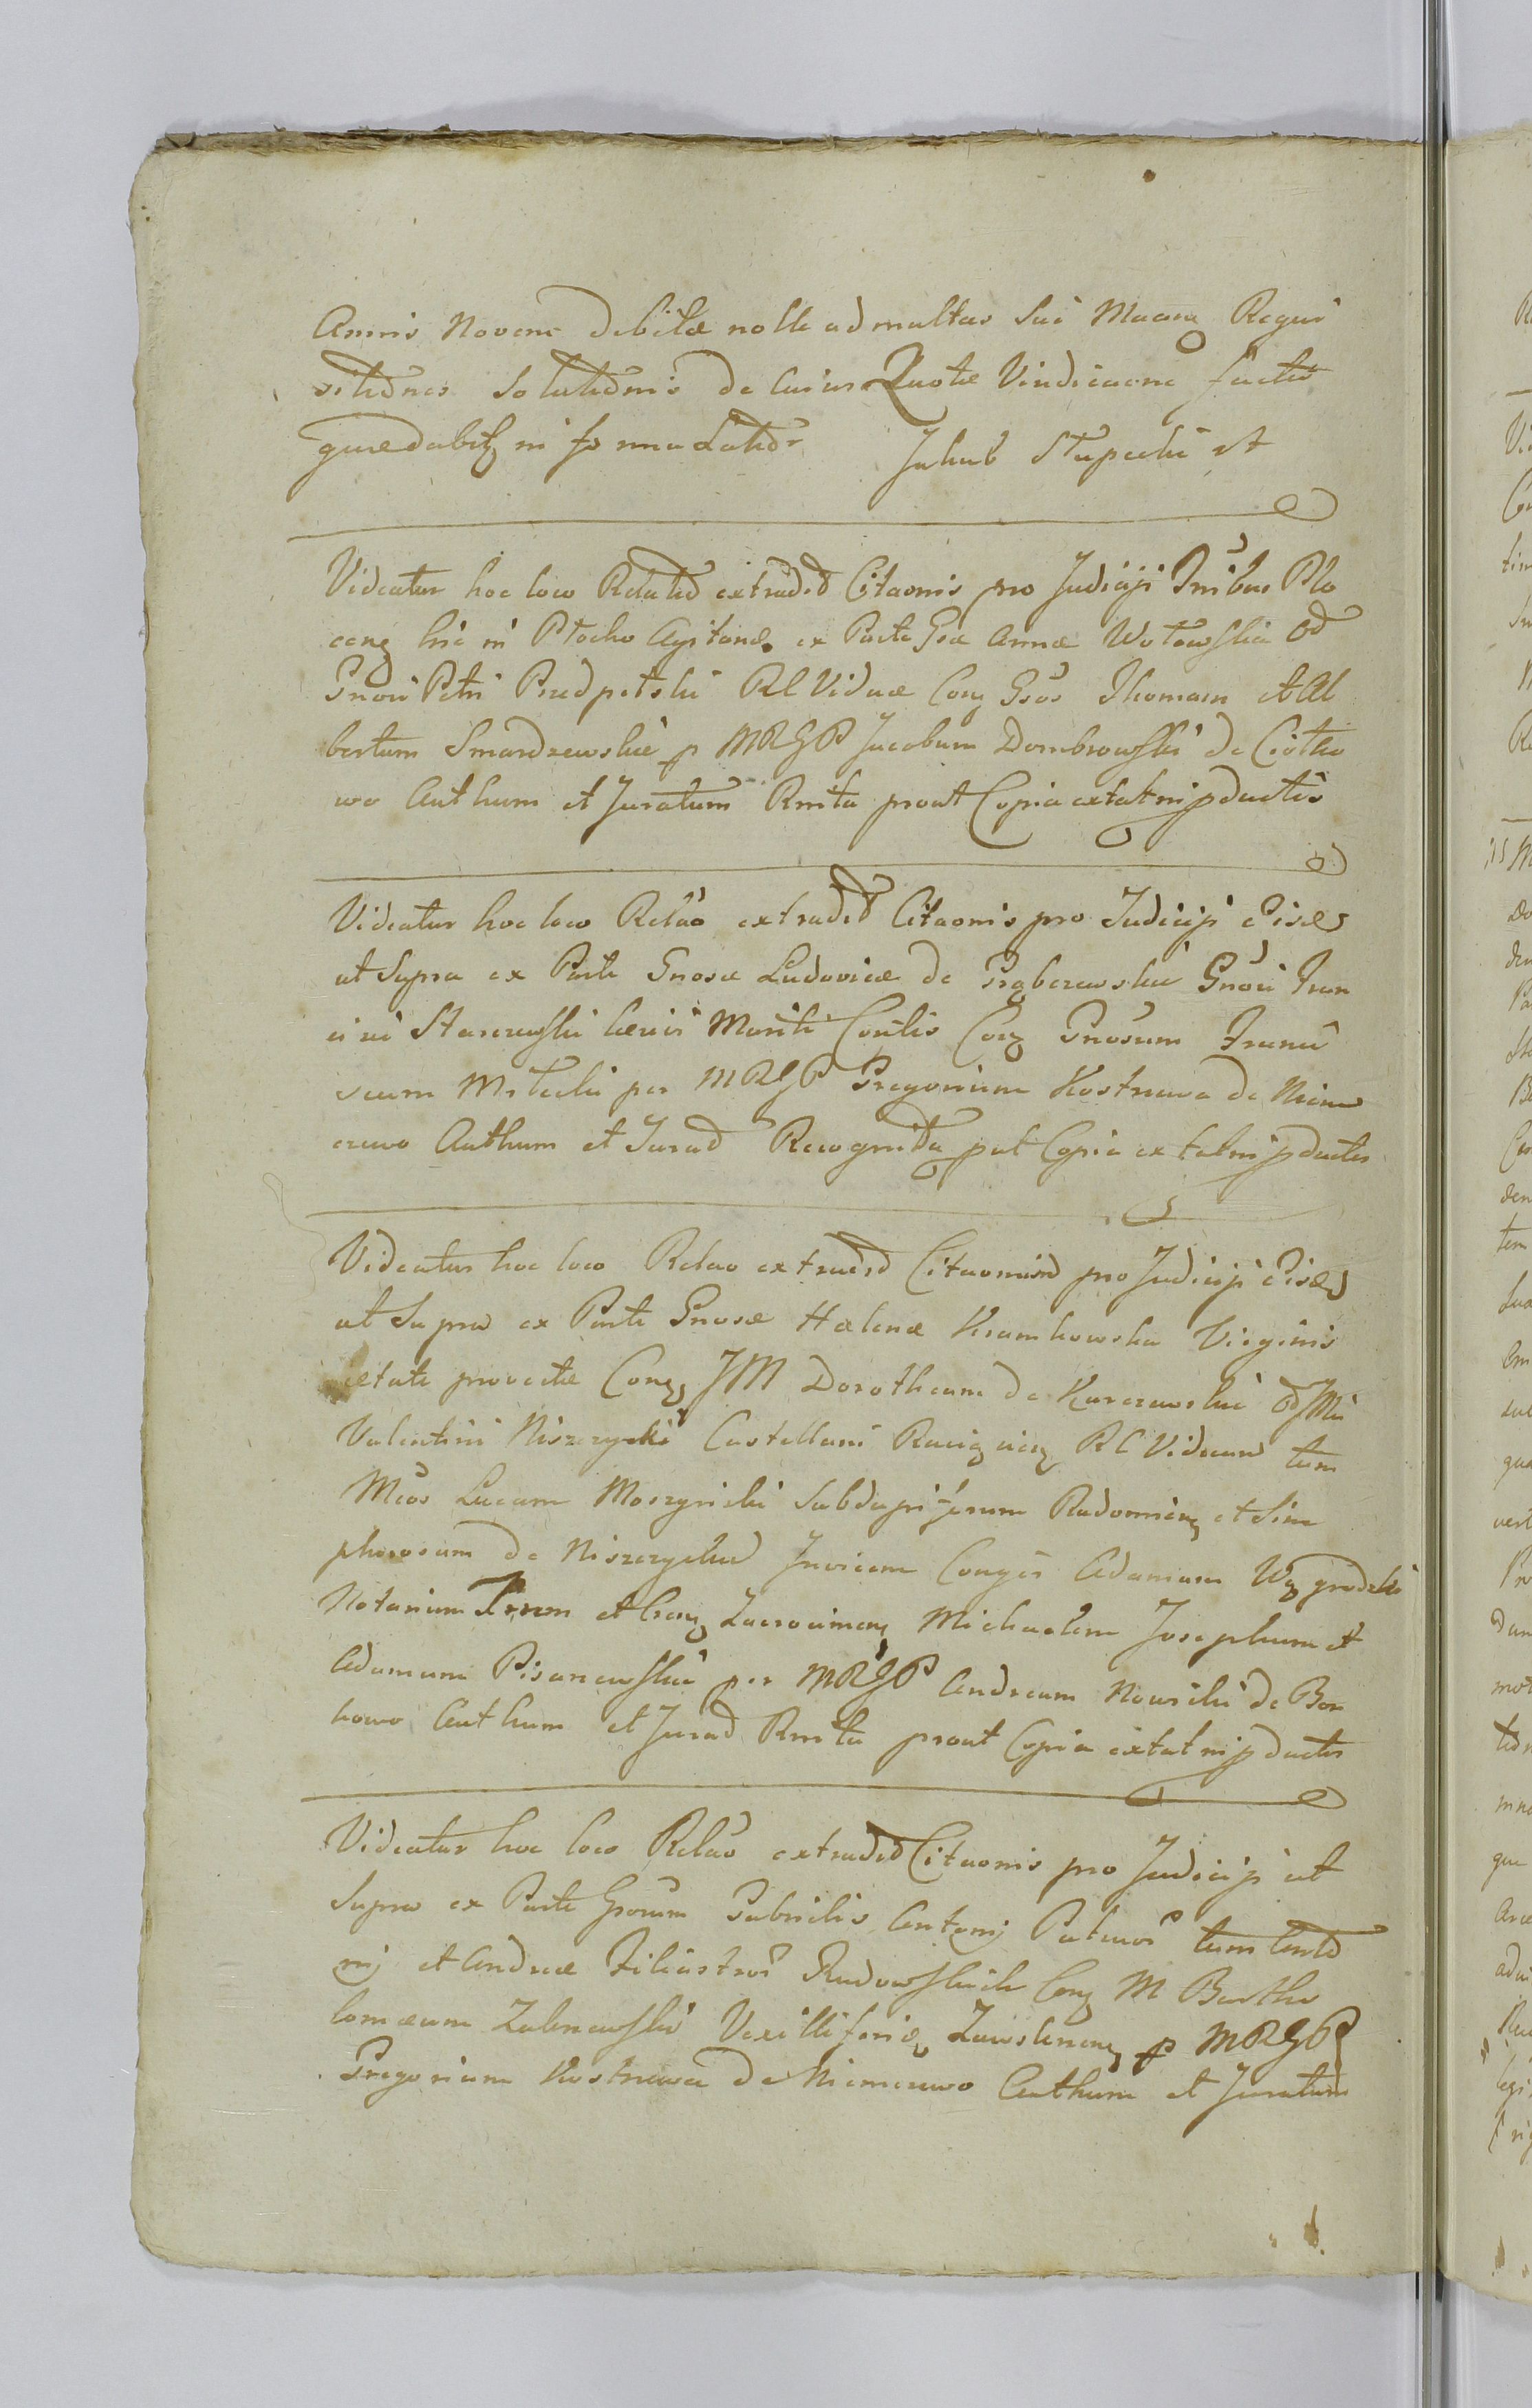 Annis Novem debitæ nolle ad multas sui Maam Requi
sitiones Solutionis de cuius Quotæ Vindicaone factis
quædabitz in forma Latior Jakub Słupecki st
Videatur hoc loco Relatio extradit Citaonis pro Judicÿ Tribus Plo
ceng hic in Płocko Agitand ex Parte Gsæ Annæ Wotowska Od
Gnosi Petri Przedpełski RC Viduæ Conz Gsos Thomam et Al
bertum Smardzewskie p MRGP Jacobum Dombrowski de Ciołko
wo Authum et Juratum Rnita prout Copia extat in pductis
Videatur hoc loco Relao extradit Citaonis pro Judicÿ eisd
ut Supra ex Parte Gnosæ Ludovicæ de Grąbczewskie Gnosi Fran
cisci Starczewski Caesi Mariti Contis Conz Gnosum Franci
scum Mitecki per MRGP Gregorium Kostrzewa de Niem
czewo Authum et Jurat Recognita put Copia extat in pductis
Videatur hoc loco Relao extradit Citaonis pro Judicÿ eisd
ut Supra ex Parte Gnosæ Halenæ Kramkowska Virginis
ætate provectæ Conz JM Dorotheam de Karczewskie Od JMi
Valentini Niszczycki Castellani Raciązien RC Viduam tum
Mcos Lucam Moszynski Subdapiferum Radomien et Sim
phorosam de Niszczyckie Invicem Conges Adamum Wązgrodzki
Notarium Trren et Conz Zacrocimen Michaelem Josephum et
Adamum Pisanowskie per MRGP Andream Nowicki de Bor
kowo Authum et Jurat Rnita prout Copia extat in pductis
Videatur hoc loco Relao extradit Citaonis pro Judicÿ ut
Supra ex Parte Gsorum Gabrielis Antonij Patruos tum Anto
nij et Andreæ Filiastros Rudowskich Conz M Bartho
lomæum Zalewski Vexilliferid Zawskrzen p MRGP
Gregorium Kostrzewa de Niemczewo Authum et Juratum